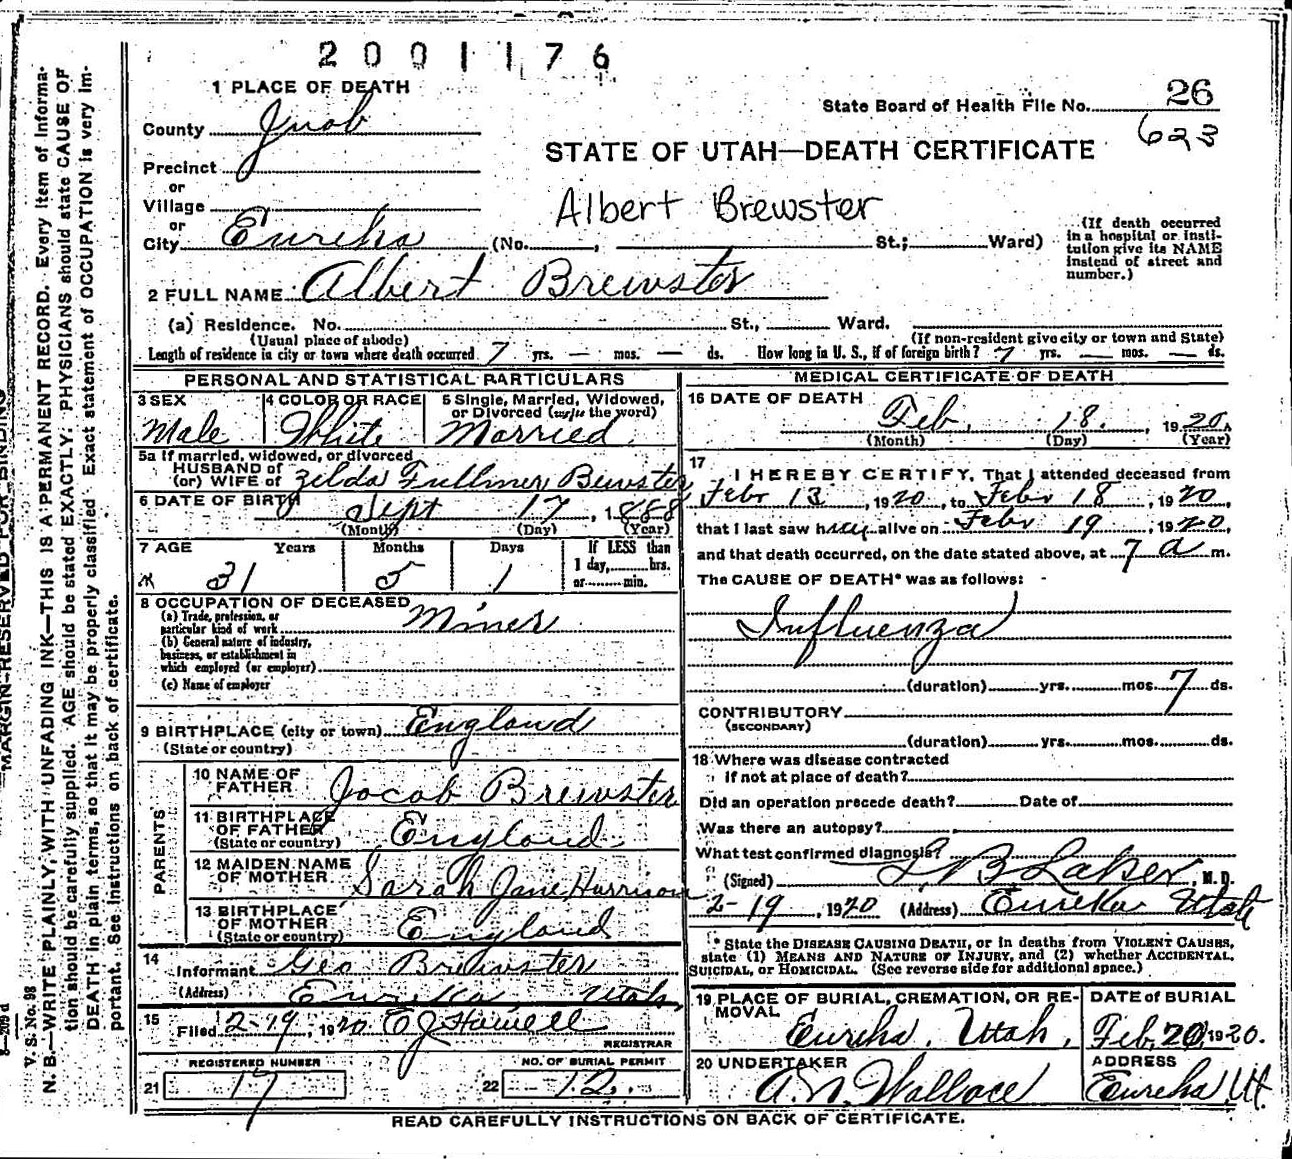 2001176
1 PLACE OF DEATH
State Board of Health File No. 26
623
County Juab
STATE OF UTAH—DEATH CERTIFICATE
Precinct
or
Village
Albert Brewster
or
City Eureka (No. , St.; Ward)
(If death occurred in a hospital or institution give its NAME instead of street and number.)
2 FULL NAME Albert Brewster
(a) Residence. No. St., Ward.
(Usual place of abode) (If non-resident give city or town and State)
Length of residence in city or town where death occurred 7 yrs. — mos. — ds. How long in U. S., if of foreign birth? 7 yrs. — mos. — ds.
PERSONAL AND STATISTICAL PARTICULARS
3 SEX 4 COLOR OR RACE 5 Single, Married, Widowed, or Divorced (write the word)
Male White Married
5a If married, widowed, or divorced
HUSBAND of
(or) WIFE of Zelda Fullmer Brewster
6 DATE OF BIRTH Sept 17, 1888
(Month) (Day) (Year)
7 AGE Years Months Days If LESS than
1 day, hrs.
or min.
31 5 1
8 OCCUPATION OF DECEASED
(a) Trade, profession, or
particular kind of work Miner
(b) General nature of industry,
business, or establishment in
which employed (or employer)
(c) Name of employer
9 BIRTHPLACE (city or town) England
(State or country)
PARENTS
10 NAME OF FATHER Jacob Brewster
11 BIRTHPLACE OF FATHER England
(State or country)
12 MAIDEN NAME OF MOTHER Sarah Jane Harrison
13 BIRTHPLACE OF MOTHER England
(State or country)
14
Informant Geo Brewster
(Address) Eureka, Utah,
15
Filed 2-19, 1920 E J Howell
REGISTRAR
REGISTERED NUMBER NO. OF BURIAL PERMIT
21 17 22 12
MEDICAL CERTIFICATE OF DEATH
16 DATE OF DEATH
Feb. 18., 1920.
(Month) (Day) (Year)
17
I HEREBY CERTIFY, That I attended deceased from
Febr 13, 1920, to Febr 18, 1920,
that I last saw him alive on Febr 19, 1920,
and that death occurred, on the date stated above, at 7 a m.
The CAUSE OF DEATH* was as follows:
Influenza
(duration) yrs. mos. 7 ds.
CONTRIBUTORY
(SECONDARY)
(duration) yrs. mos. ds.
18 Where was disease contracted
if not at place of death?
Did an operation precede death? Date of
Was there an autopsy?
What test confirmed diagnosis?
(Signed) , M. D.
2-19, 1920 (Address) Eureka Utah
* State the DISEASE CAUSING DEATH, or in deaths from VIOLENT CAUSES,
state (1) MEANS AND NATURE OF INJURY, and (2) whether ACCIDENTAL,
SUICIDAL, or HOMICIDAL. (See reverse side for additional space.)
19 PLACE OF BURIAL, CREMATION, OR REMOVAL DATE of BURIAL
Eureka, Utah, Feb. 20, 1920.
20 UNDERTAKER ADDRESS
A. N. Wallace Eureka Ut.
READ CAREFULLY INSTRUCTIONS ON BACK OF CERTIFICATE.
MARGIN RESERVED FOR BINDING
V. S. No. 98
N. B.—WRITE PLAINLY, WITH UNFADING INK—THIS IS A PERMANENT RECORD. Every item of information should be carefully supplied. AGE should be stated EXACTLY. PHYSICIANS should state CAUSE OF DEATH in plain terms, so that it may be properly classified. Exact statement of OCCUPATION is very important. See instructions on back of certificate.